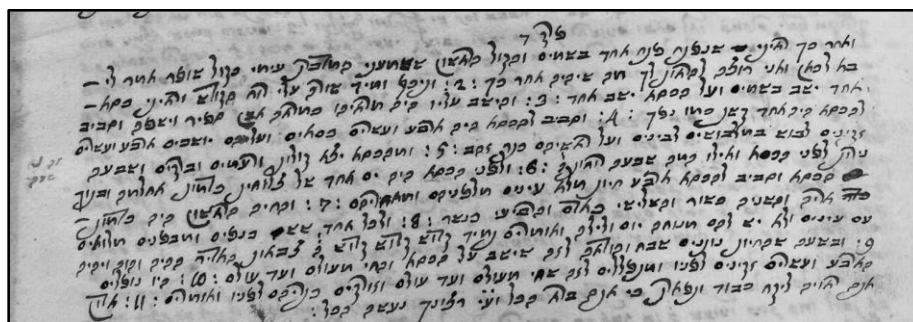 פרק ד
ואחר כך ראיתי שנפתח פתח אחד בשמים והקול הראשון ששמעני המדבר עימי כקול שופר אמר לי –
בא לכאן ואני רוצה להראות לך מה שיהיה אחר כך :2: ותיכף ומיד שורה עלי רוח הקודש וראיתי כסא –
אחד ישב בשמים ועל הכסא ישב אחד :3: והישב עליו היה תוארו כתואר אבן ספיר וישפה וסביב
להכסא היה אחד קשת כמו נפך :4: וסביב להכסא היה ארבע ועשרים כסאים ועליהם יושבים ארבע ועשרים
זקינים לבוש במלבושים לבינים ועל ראשיהם כתר זהב :5: ומהכסא יצא קולות ורעמים וברקים ושבעה
נירות לפני הכסא ואילו המה שבעה רוחות :6: ולפני הכסא היה ים אחד של צלוחית אחלמה ובתוך
הכסא וסביב להכסא ארבע חיות מלא עינים מלפניהם ומאחריהם :7: והחיה הראשון היה –
אריה והשנית כשור והשלישי כאדם והרביעי כנשר :8: ולכל אחד ששה כנפים ומבפנים מלואים
עם עינים ולא יש להם מנוחה יום ולילה ואומרים תמיד קדוש קדוש קדוש ה' צבאות ההיה הוה ויהיה
9: ובשעה שהחיות נותנים שבח והודאה לזה שישב על הכסא והחי מעולם ועד עולם :10: היו נופלים
הארבע ועשרים זקינים לפניו ומתפללים לזה שחי מעולם ועד עולם וזורקים כתריהם לפניו ואומרים :11: אדון
אתה ראוים ליקח כבוד ותפארת כי אתה ברא הכל וע״י רצונך נעשה הכל :